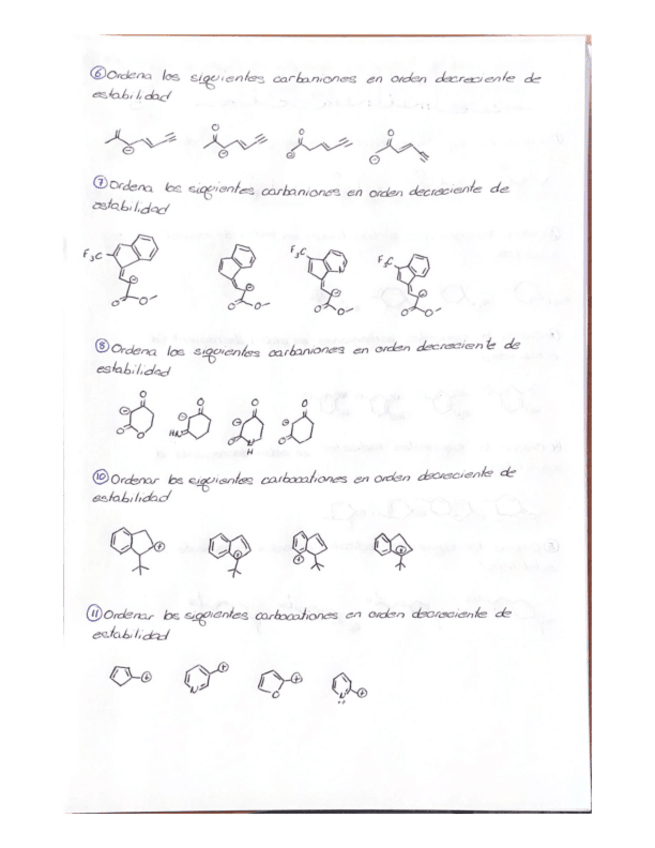 ⑥ Ordena los siguientes carbaniones en orden decreciente de
estabilidad
⊖ O ⊖ O ⊖ O ⊖
⑦ Ordena los siguientes carbaniones en orden decreciente de
estabilidad
F3C ⊖ O O F3C ⊖ O O
⊖ O O F3C ⊖ O O
⑧ Ordena los siguientes carbaniones en orden decreciente de
estabilidad
O ⊖ O O O ⊖ O ⊖ O N H O ⊖ O
⑩ Ordenar los siguientes carbocationes en orden decreciente de
estabilidad
⊕ ⊕ ⊕ ⊕
⑪ Ordenar los siguientes carbocationes en orden decreciente de
estabilidad
⊕ N ⊕ O ⊕ N ⊕